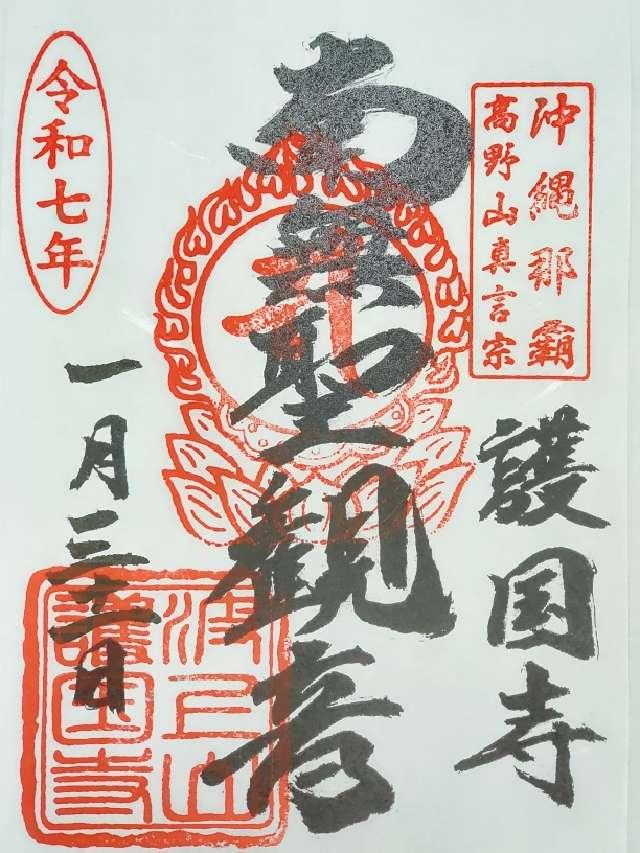 沖縄那覇
高野山真言宗
護国寺
南無聖観音
令和七年
一月三十一日
波上山
護国寺